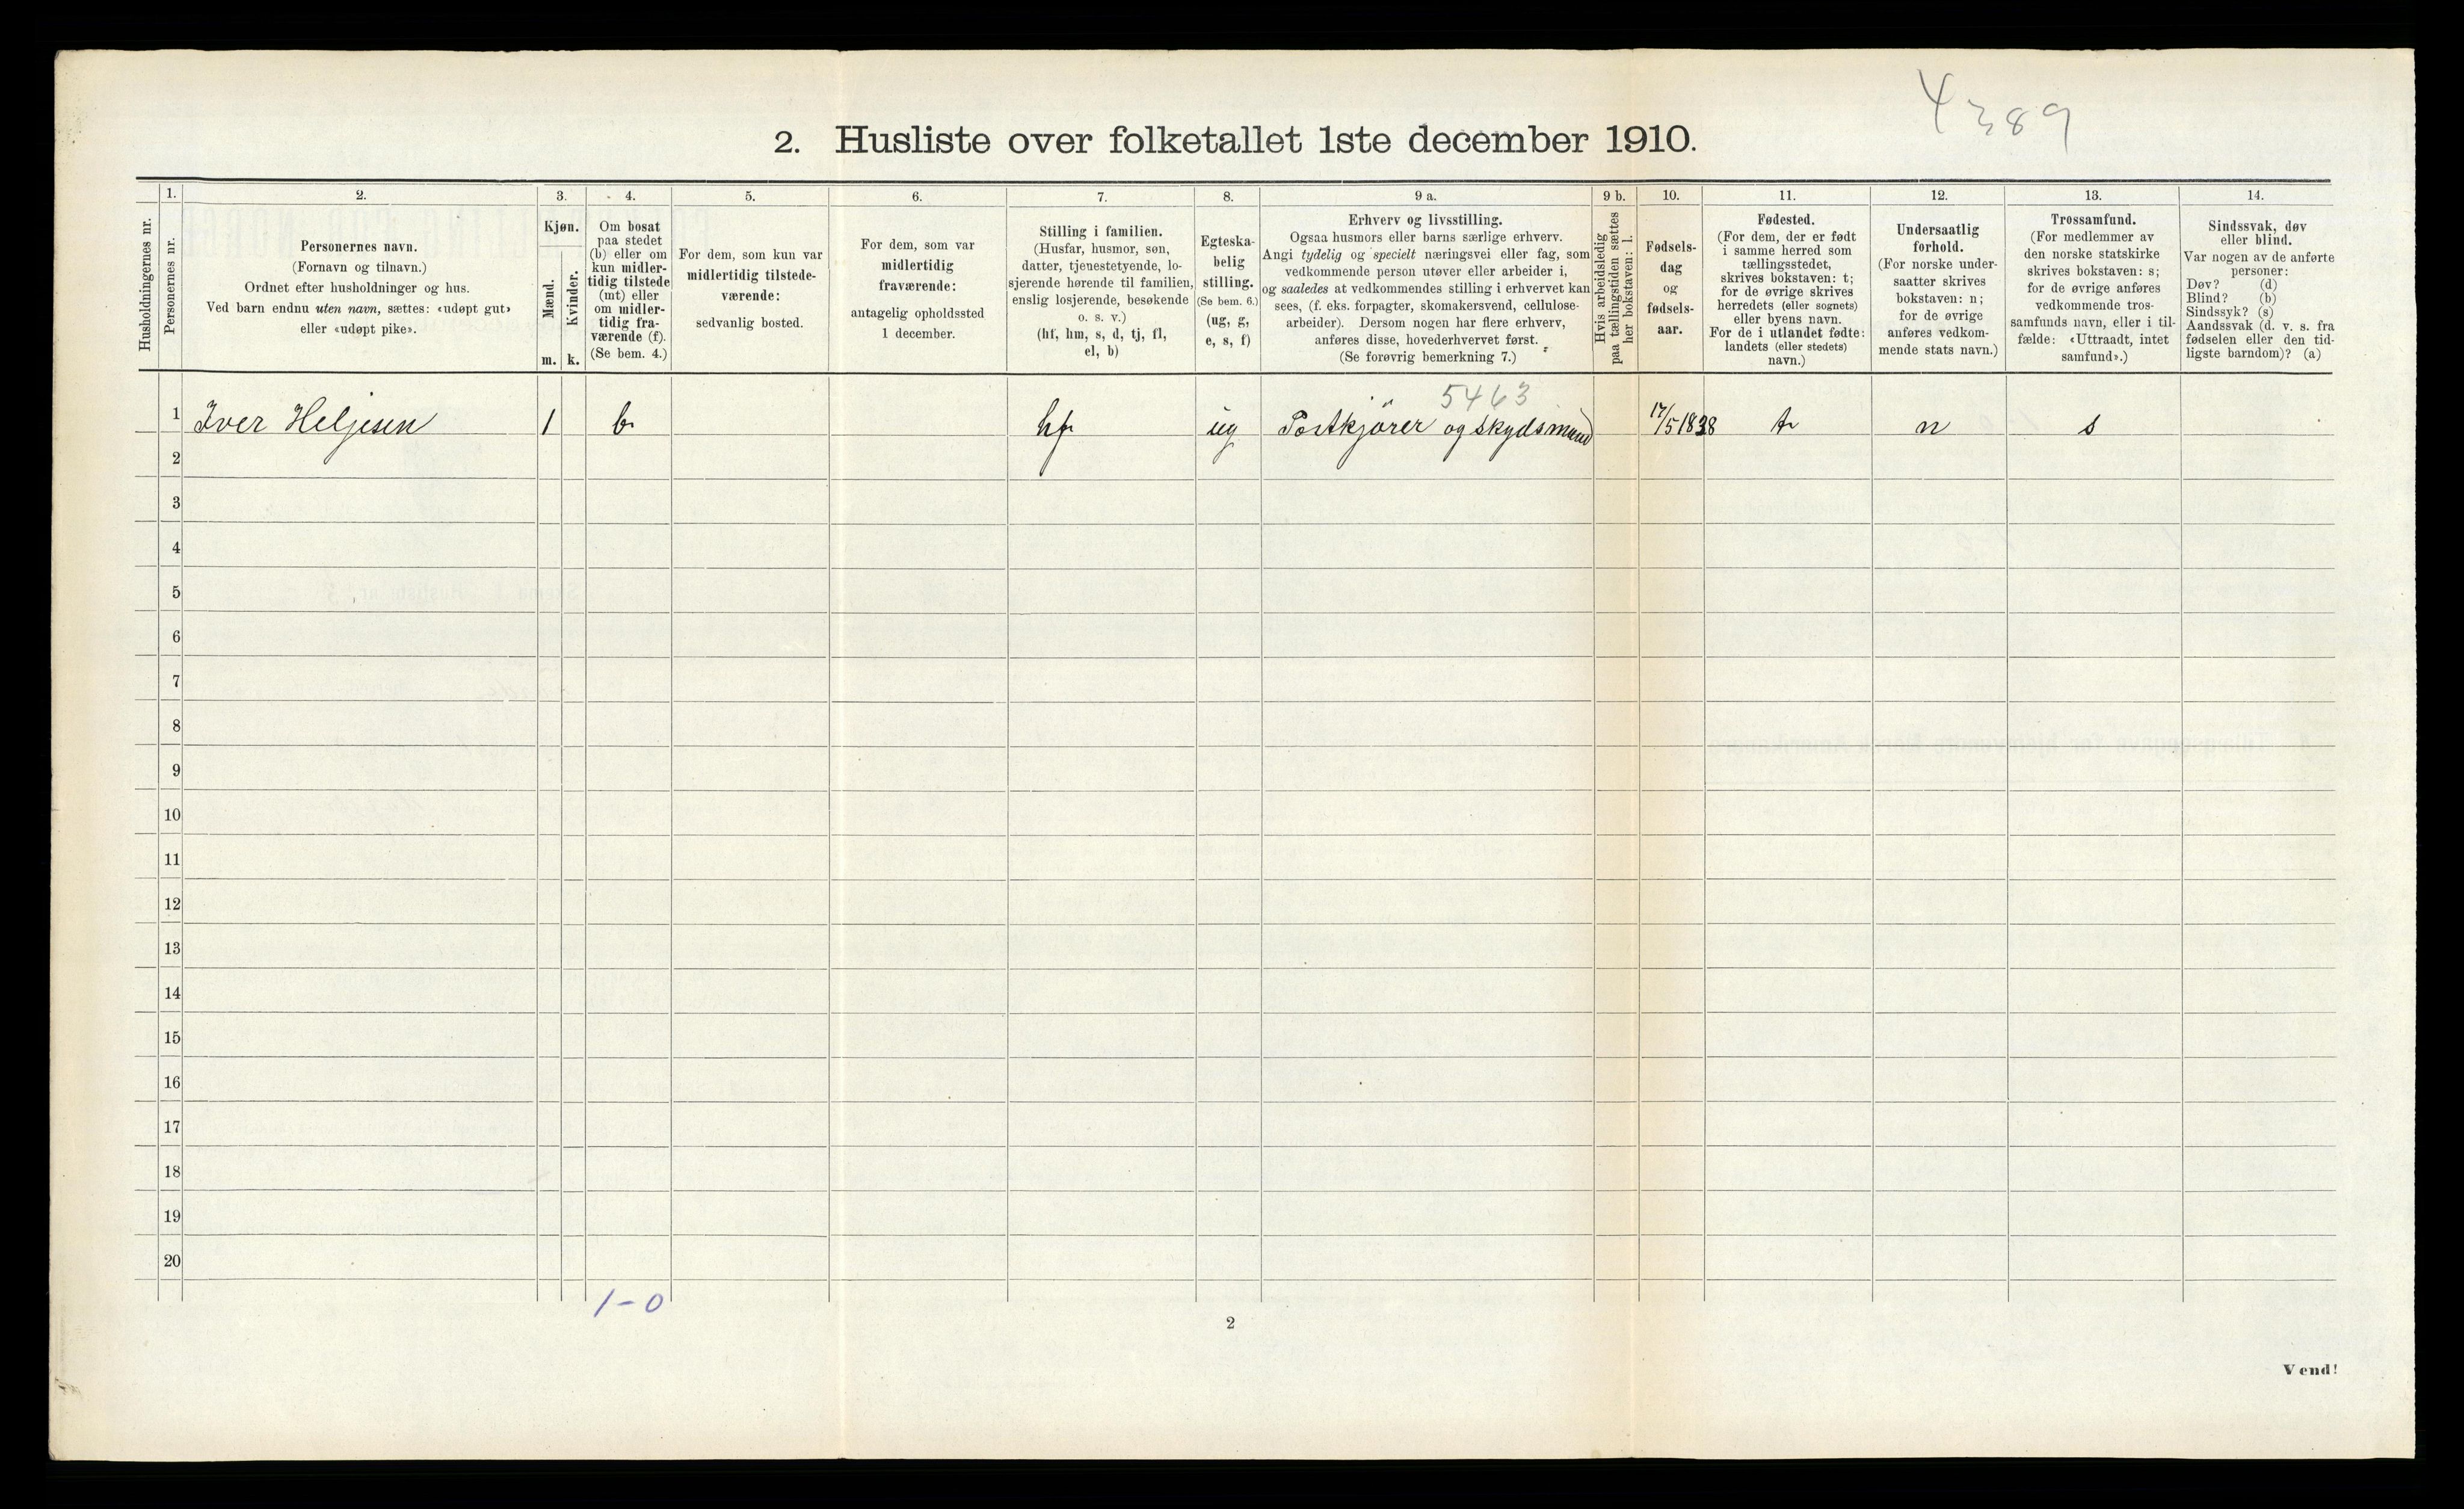 4389
2. Husliste over folketallet 1ste december 1910.
Husholdningernes nr.
1.
Personernes nr.
2.
Personernes navn.
(Fornavn og tilnavn.)
Ordnet efter husholdninger og hus.
Ved barn endnu uten navn, sættes: «udøpt gut»
eller «udøpt pike».
3.
Kjøn.
Mænd.
m.
Kvinder.
k.
4.
Om bosat
paa stedet
(b) eller om
kun midler-
tidig tilstede
(mt) eller
om midler-
tidig fra-
værende (f).
(Se bem. 4.)
5.
For dem, som kun var
midlertidig tilstede-
værende:
sedvanlig bosted.
6.
For dem, som var
midlertidig
fraværende:
antagelig opholdssted
1 december.
7.
Stilling i familien.
(Husfar, husmor, søn,
datter, tjenestetyende, lo-
sjerende hørende til familien,
enslig losjerende, besøkende
o. s. v.)
(hf, hm, s, d, tj, fl,
el, b)
8.
Egteska-
belig
stilling.
(Se bem. 6.)
(ug, g,
e, s, f)
9 a.
Erhverv og livsstilling.
Ogsaa husmors eller barns særlige erhverv.
Angi tydelig og specielt næringsvei eller fag, som
vedkommende person utøver eller arbeider i,
og saaledes at vedkommendes stilling i erhvervet kan
sees, (f. eks. forpagter, skomakersvend, cellulose-
arbeider). Dersom nogen har flere erhverv,
anføres disse, hovederhvervet først.
(Se forøvrig bemerkning 7.)
9 b.
Hvis arbeidsledig
paa tællingstiden sættes
her bokstaven: l.
10.
Fødsels-
dag
og
fødsels-
aar.
11.
Fødested.
(For dem, der er født
i samme herred som
tællingsstedet,
skrives bokstaven: t;
for de øvrige skrives
herredets (eller sognets)
eller byens navn.
For de i utlandet fødte:
landets (eller stedets)
navn.)
12.
Undersaatlig
forhold.
(For norske under-
saatter skrives
bokstaven: n;
for de øvrige
anføres vedkom-
mende stats navn.)
13.
Trossamfund.
(For medlemmer av
den norske statskirke
skrives bokstaven: s;
for de øvrige anføres
vedkommende tros-
samfunds navn, eller i til-
fælde: «Uttraadt, intet
samfund».)
14.
Sindssvak, døv
eller blind.
Var nogen av de anførte
personer:
Døv? (d)
Blind? (b)
Sindssyk? (s)
Aandssvak (d. v. s. fra
fødselen eller den tid-
ligste barndom)? (a)
5463
1 Iver Heljesen 1 b hf ug Postkjörer og skydsmand 17/5 1838 t n s
2
3
4
5
6
7
8
9
10
11
12
13
14
15
16
17
18
19
20
1-0
2
Vend!